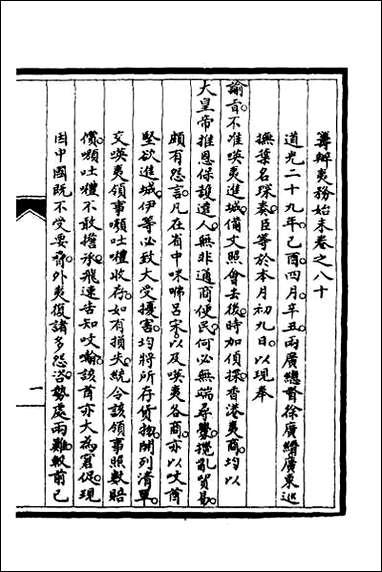 籌辦夷務始末卷之八十
道光二十九年己酉四月辛丑兩廣總督徐廣縉廣東巡
撫葉名琛奏臣等於本月初九日以現奉
諭旨不准㗲夷進城備文照會去後時加偵探香港夷商均以
大皇帝推恩保護遠人無非通商便民何必無端尋釁攪亂貿易
頗有怨言凡在省中咪㗑呂宋以及㗲夷各商亦以㕦酋
堅欲進城伊等必致大受擾害均將所存貨物開列清單
交㗲夷領事嚬吐𠼤收存如有損失統令該領事照數賠
償嚬吐𠼤不敢擔承飛速告知㕦噏該酋亦大為窘促現
因中國既不受要脅外夷復諸多怨咨勢處兩難較前已
一